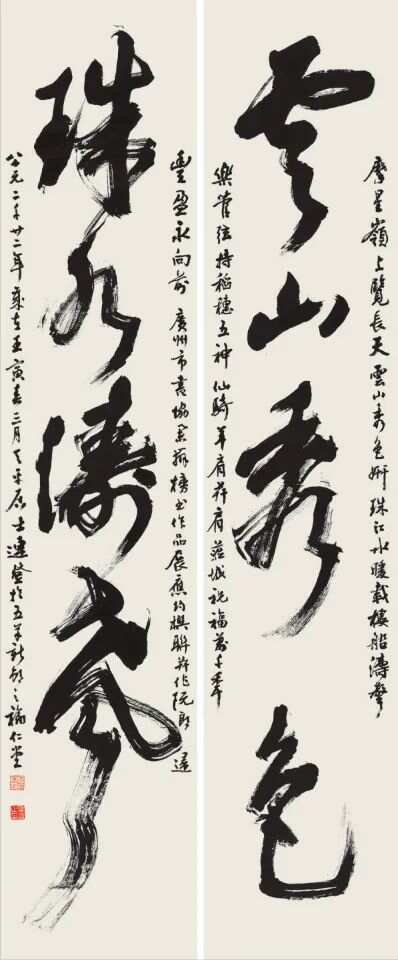 摩星嶺上覽長天雲山秀色妍珠江水暖載樓船濤聲
云山秀色
樂管弦持稻穗五神仙騎羊肩并肩城祝福萬千年
豐盈永向前 廣州市書協榜書作品展應約撰聯并作阮郎歸
珠水濤聲
公元二千廿二年歲在壬寅春三月士連於五羊新之福仁堂